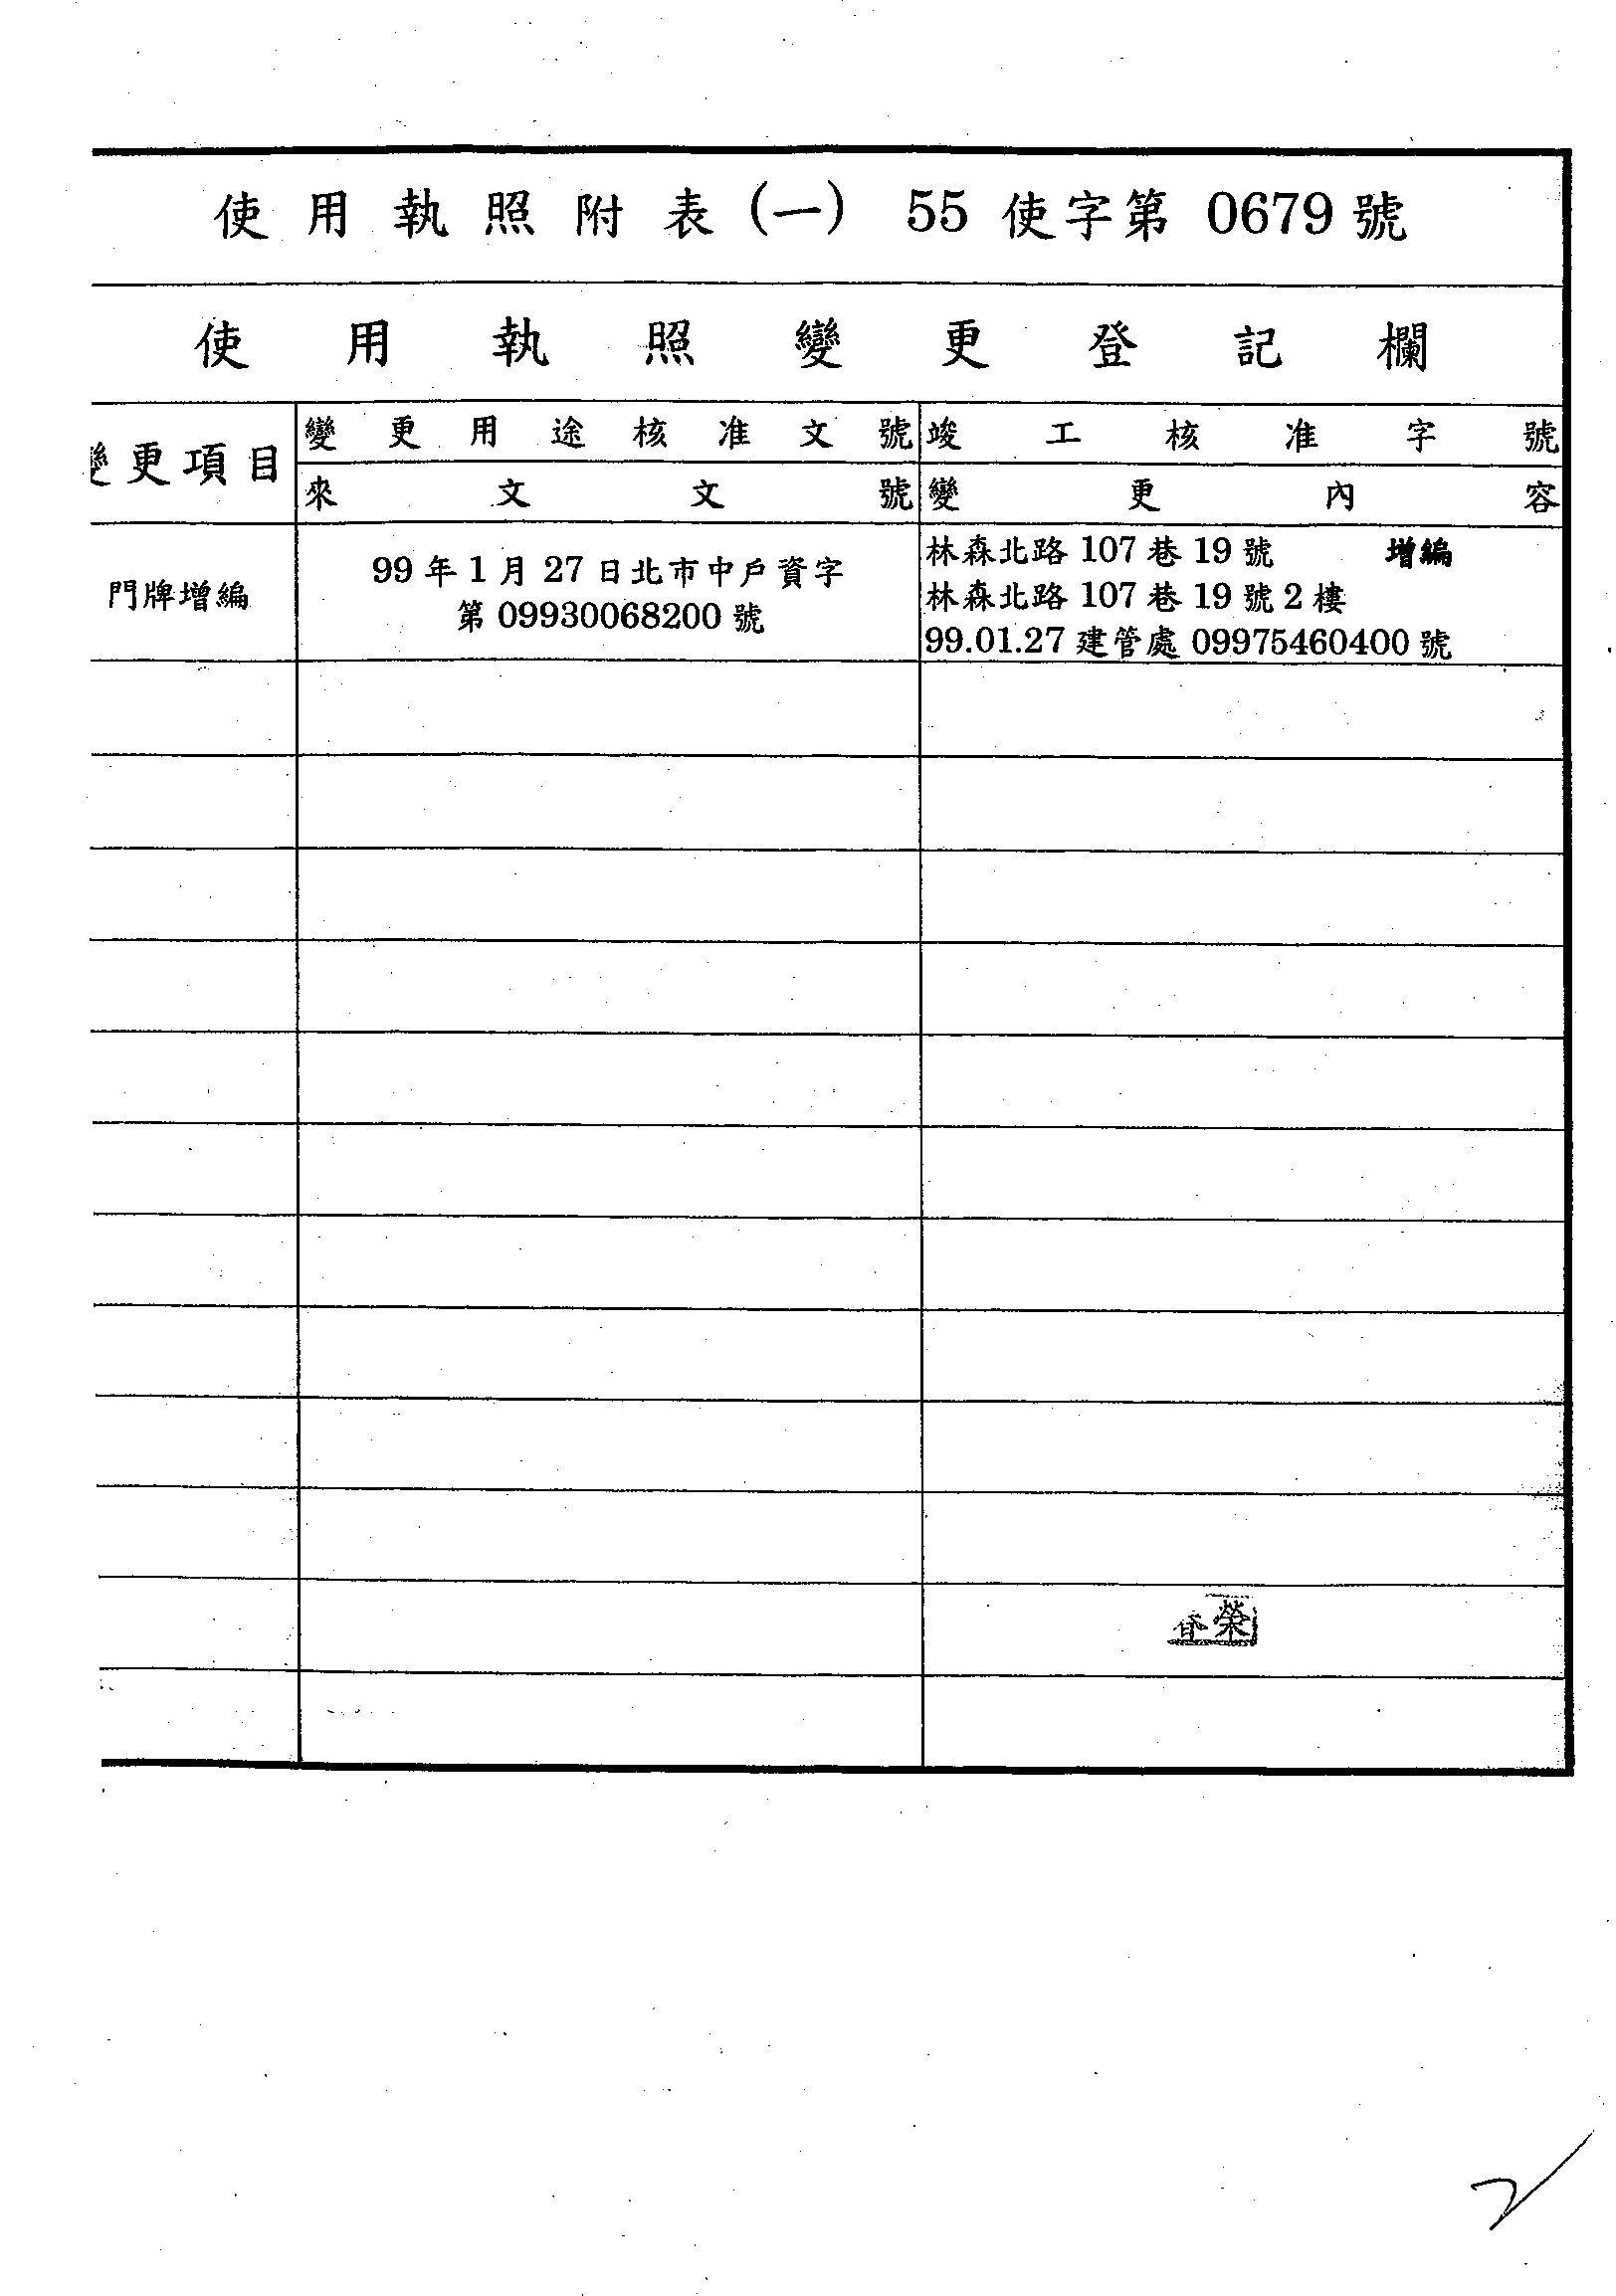 使用執照附表(一) 55 使字第 0679 號
使用執照變更登記欄
變更項目
變更用途核准文號
竣工核准字號
來文文號
變更內容
門牌增編
99 年 1 月 27 日北市中戶資字
第 09930068200 號
林森北路 107 巷 19 號 增編
林森北路 107 巷 19 號 2 樓
99.01.27 建管處 09975460400 號